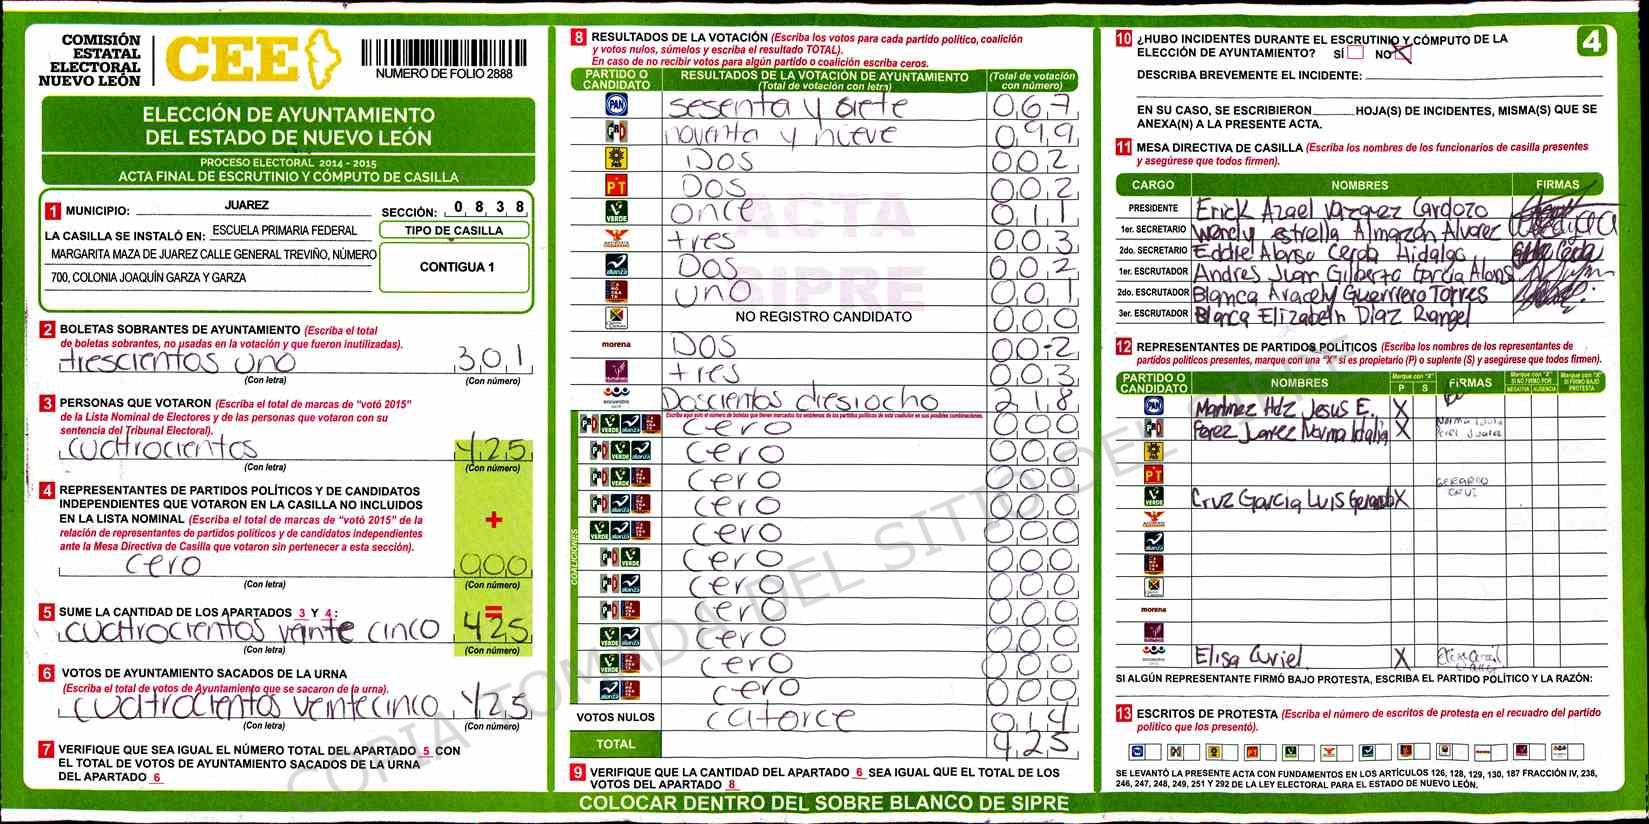 COMISIÓN
ESTATAL
ELECTORAL
NUEVO LEÓN
CEE
NUMERO DE FOLIO 2888
ELECCIÓN DE AYUNTAMIENTO
DEL ESTADO DE NUEVO LEÓN
PROCESO ELECTORAL 2014 - 2015
ACTA FINAL DE ESCRUTINIO Y CÓMPUTO DE CASILLA
1 MUNICIPIO: JUAREZ SECCIÓN: 0 8 3 8
LA CASILLA SE INSTALÓ EN: ESCUELA PRIMARIA FEDERAL
MARGARITA MAZA DE JUAREZ CALLE GENERAL TREVIÑO, NÚMERO
700, COLONIA JOAQUÍN GARZA Y GARZA
TIPO DE CASILLA
CONTIGUA 1
2 BOLETAS SOBRANTES DE AYUNTAMIENTO (Escriba el total
de boletas sobrantes, no usadas en la votación y que fueron inutilizadas).
trescientos uno 301
(Con letra) (Con número)
3 PERSONAS QUE VOTARON (Escriba el total de marcas de "votó 2015"
de la Lista Nominal de Electores y de las personas que votaron con su
sentencia del Tribunal Electoral).
cuatrocientos 425
(Con letra) (Con número)
4 REPRESENTANTES DE PARTIDOS POLÍTICOS Y DE CANDIDATOS
INDEPENDIENTES QUE VOTARON EN LA CASILLA NO INCLUIDOS
EN LA LISTA NOMINAL (Escriba el total de marcas de "votó 2015" de la
relación de representantes de partidos políticos y de candidatos independientes
ante la Mesa Directiva de Casilla que votaron sin pertenecer a esta sección).
+
cero 000
(Con letra) (Con número)
5 SUME LA CANTIDAD DE LOS APARTADOS 3 Y 4:
=
cuatrocientos veinte cinco 425
(Con letra) (Con número)
6 VOTOS DE AYUNTAMIENTO SACADOS DE LA URNA
(Escriba el total de votos de Ayuntamiento que se sacaron de la urna).
cuatrocientos veintecinco 425
(Con letra) (Con número)
7 VERIFIQUE QUE SEA IGUAL EL NÚMERO TOTAL DEL APARTADO 5 CON
EL TOTAL DE VOTOS DE AYUNTAMIENTO SACADOS DE LA URNA
DEL APARTADO 6
8 RESULTADOS DE LA VOTACIÓN (Escriba los votos para cada partido político, coalición
y votos nulos, súmelos y escriba el resultado TOTAL).
En caso de no recibir votos para algún partido o coalición escriba ceros.
PARTIDO O CANDIDATO RESULTADOS DE LA VOTACIÓN DE AYUNTAMIENTO (Total de votación con letra) (Total de votación con número)
PAN sesenta y siete 067
PRI noventa y nueve 099
PRD Dos 002
PT Dos 002
VERDE once 011
tres 003
alianza Dos 002
uno 001
NO REGISTRO CANDIDATO 000
morena Dos 002
tres 003
encuentro Doscientos diesiocho 218
COALICIONES
Escriba aquí solo el número de boletas que tienen marcados los emblemas de los partidos políticos de esta coalición en sus posibles combinaciones.
cero 000
cero 000
cero 000
cero 000
cero 000
cero 000
cero 000
cero 000
cero 000
cero 000
cero 000
VOTOS NULOS catorce 014
TOTAL 425
9 VERIFIQUE QUE LA CANTIDAD DEL APARTADO 6 SEA IGUAL QUE EL TOTAL DE LOS
VOTOS DEL APARTADO 8
COLOCAR DENTRO DEL SOBRE BLANCO DE SIPRE
ACTA
SIPRE
COPIA TOMADA DEL SITIO DEL SIPRE
4
10 ¿HUBO INCIDENTES DURANTE EL ESCRUTINIO Y CÓMPUTO DE LA
ELECCIÓN DE AYUNTAMIENTO? SÍ NO X
DESCRIBA BREVEMENTE EL INCIDENTE:
EN SU CASO, SE ESCRIBIERON HOJA(S) DE INCIDENTES, MISMA(S) QUE SE
ANEXA(N) A LA PRESENTE ACTA.
11 MESA DIRECTIVA DE CASILLA (Escriba los nombres de los funcionarios de casilla presentes
y asegúrese que todos firmen).
CARGO NOMBRES FIRMAS
PRESIDENTE Erick Azael Vazquez Cardozo
1er. SECRETARIO Wendy estrella Almazan Alvarez
2do. SECRETARIO Eddie Alonso Cerda Hidalgo
1er. ESCRUTADOR Andres Juan Gilberto Garcia Alons
2do. ESCRUTADOR Blanca Aracely Guerrero Torres
3er. ESCRUTADOR Blanca Elizabeth Diaz Rangel
12 REPRESENTANTES DE PARTIDOS POLÍTICOS (Escriba los nombres de los representantes de
partidos políticos presentes, marque con una "X" si es propietario (P) o suplente (S) y asegúrese que todos firmen).
PARTIDO O CANDIDATO NOMBRES Marque con "X" P S FIRMAS Marque con "X" SI NO FIRMÓ POR NEGATIVA AUSENCIA Marque con "X" SI FIRMÓ BAJO PROTESTA
PAN Martinez Hdz Jesus E. X
PRI Perez Juarez Norma Idalia X Norma Idalia Perez Juarez
PRD
PT
VERDE Cruz Garcia Luis Gerardo X GERARDO CRUZ
alianza
morena
encuentro Elisa Curiel X
SI ALGÚN REPRESENTANTE FIRMÓ BAJO PROTESTA, ESCRIBA EL PARTIDO POLÍTICO Y LA RAZÓN:
13 ESCRITOS DE PROTESTA (Escriba el número de escritos de protesta en el recuadro del partido
político que los presentó).
SE LEVANTÓ LA PRESENTE ACTA CON FUNDAMENTOS EN LOS ARTÍCULOS 126, 128, 129, 130, 187 FRACCIÓN IV, 238,
246, 247, 248, 249, 251 Y 292 DE LA LEY ELECTORAL PARA EL ESTADO DE NUEVO LEÓN.